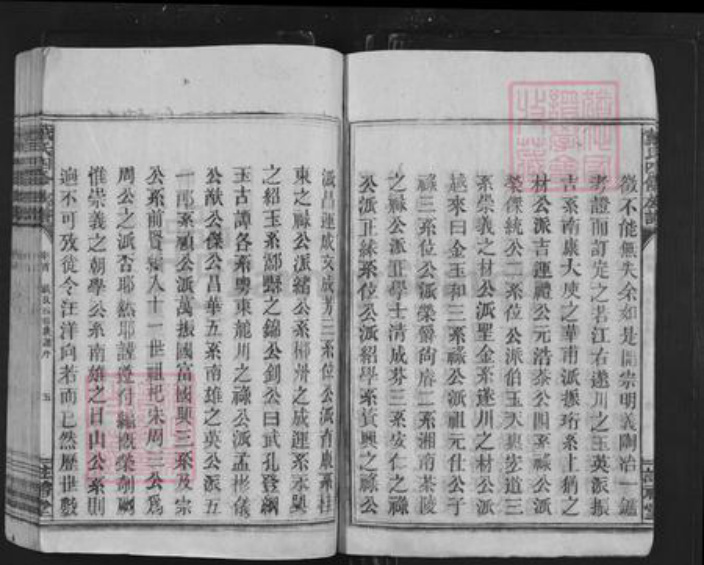 徵不能無失余如是開崇明義陶冶一鑪
考證而訂定之若江右遂川之玉英派振
吉系南康大庾之華甫派振珩系上猶之
材公派吉運禮公元浩泰公四系祿公派
榮傑統公二系位公派伯玉天與安道三
系崇義之材公派聖金系遂川之材公派
越來曰金玉和三系祿公派祖元仕公子
祿三系位公派榮爵尚庠二系湘南茶陵
之祿公派正學士清成芬三系安仁之祿
公派正綵系位公派紹學系資興之祿公
派昌運成文成芳三系位公派育康系桂
東之祿公派緒公系郴州之成運系永興
之紹玉系酃縣之錦公釗公曰武孔登綱
玉古譚各系粵東龍川之祿公派孟彬儀
公猷公傑公昌華五系南雄之英公派五
一郎系顯公派萬振國富國興三系及宗
公系前賢續入十一世祖杞宋周三公為
周公之派否耶然耶謹遵付
惟崇義之朝學公系南雄之日山公系則
邈不可攷從令汪洋向若而已然歷世數
五